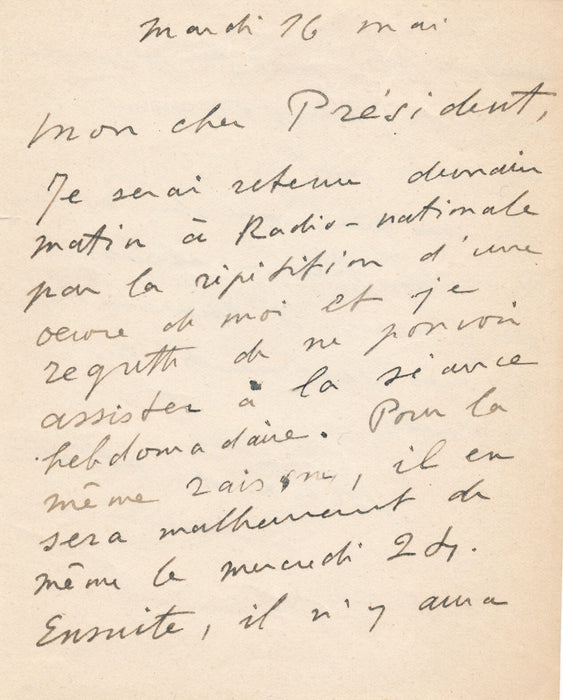 Mardi 16 mai
Mon cher Président,
Je serai retenu demain
matin à Radio-nationale
par la répétition d'une
oeuvre de moi et je
regrette de ne pouvoir
assister à la séance
hebdomadaire. Pour la
même raison, il en
sera malheureusement de
même le mercredi 24.
Ensuite, il n'y aura